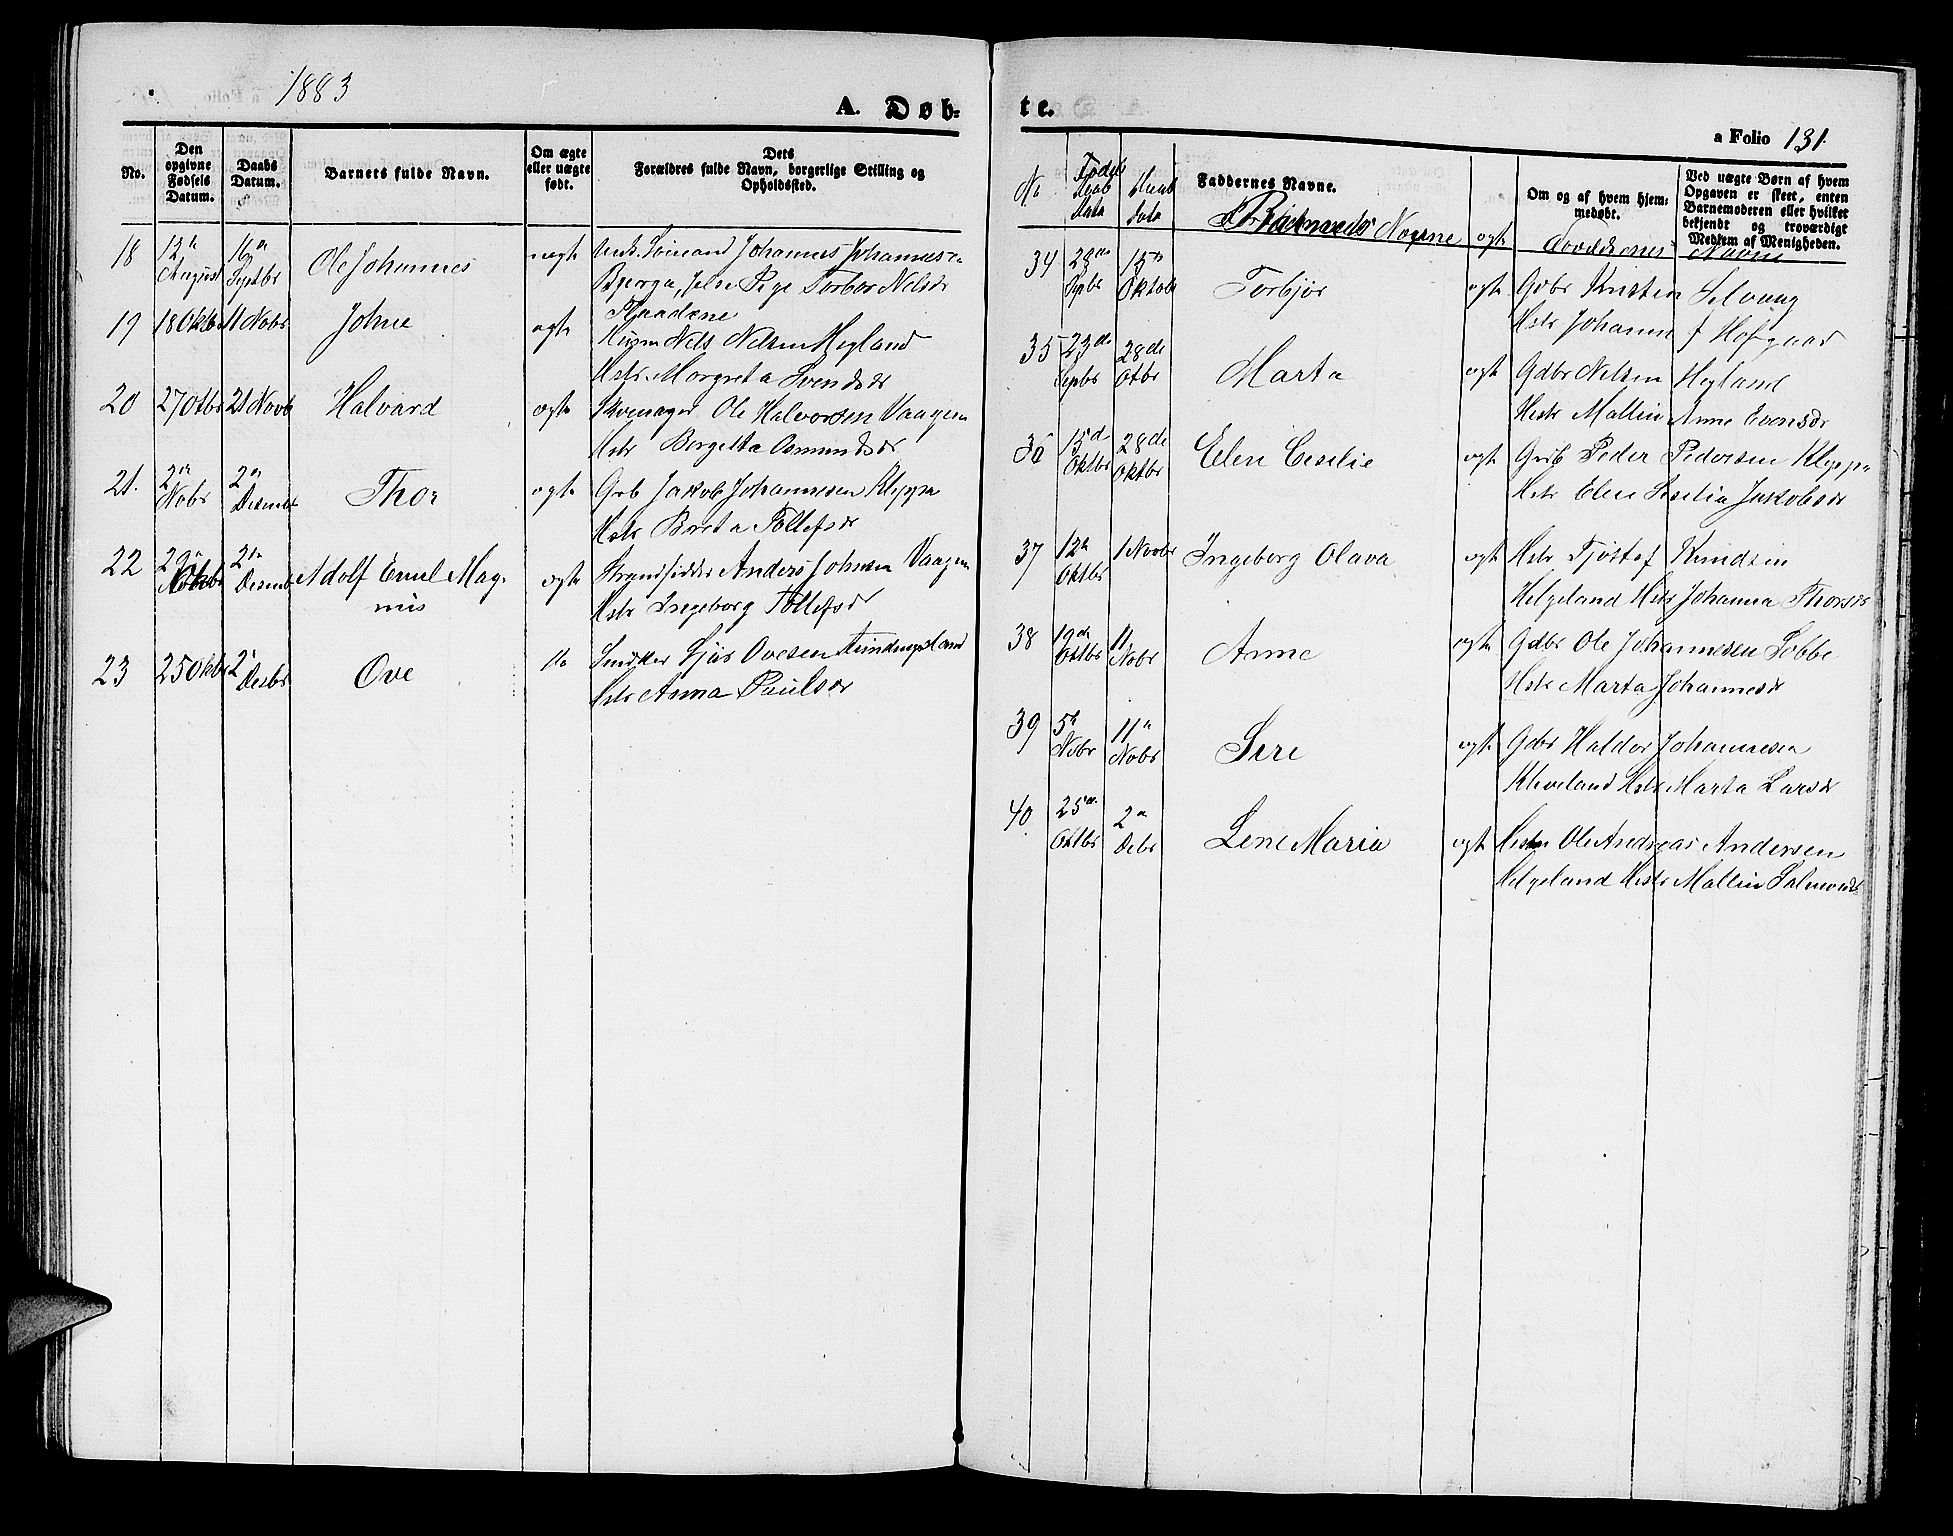 1883
A. Døb-
No.
Den opgivne Fødsels Datum.
Daabs Datum.
Barnets fulde Navn.
Om ægte eller uægte født.
Dets Forældres fulde Navn, borgerlige Stilling og Opholdssted.
18 12te August 16de Septbr Ole Johannes uegte Unk. Sømand Johannes Johannes
Bjerga, Jelse Pige Torbor Nelsdr
19 18 Oktb 11 Nobr Johne egte
Husm Nels Nelsen Høgland
Hstr Margreta Svendsdr
20 27 Otbr 21 Novb Halvard egte Ole Halvorsen Vaagen
Hstr Bergetta Osmundsdr
21. 2den Nobr 2den Desmbr Thor egte Grb Jakob Johannesen Kleppe
Hstr Berta Tollefsdr
22 29de 2den Desmb Adolf Emil Mag- egte Strandsidder Anders Johnsen Vaagen
nus Hstr Ingeborg Tollefsdr
23 25 Oktbr 2 Desbr Ove Snidker Ovesen
Hstr Anna Paulsdr
te.
a Folio 131.
No Fødsels Data Daab Data
Faddernes Navne.
Om og af hvem hjemmedøbt.
Ved uægte Børn af hvem Opgaven er skeet, enten Barnemoderen eller hvilket bekjendt og troværdigt Medlem af Menigheden.
Navne egte Navne
34 28de Sepbr 15de Oktob Torbjør egte Gdbr Kristen Selvaag
Hstr Johanne J Hofgaard
35 23de Sepbr 28de Otbr Marta egte Gdbr Nelsen Høgland
Hstr Mallin Anne Evensdr
36 15de Oktbr 28de Oktbr Elen Cesilie egte Grb Peder Pedersen Kleppe
Hstr Elen Sesilia Jakobsdr
37 12te Oktbr 1 Novbr Ingeborg Olava egte Hstr Tjøstof Knudsen
Helgeland Hstr Johanna Thorsdr
38 19de Oktbr 11 Nobr Anne egte Gdbr Ole Johannesen Tobbe
Hstr Marta Johannesdr
39 5te Nobr 11te Nobr Siri egte Gdbr Haldor Johannesen
Kleveland Hstr Marta Larsdr
40 25de Oktbr 2den Debr Lene Maria egte Hstm Ole Andreas Andersen
Helgeland Hstr Mallin